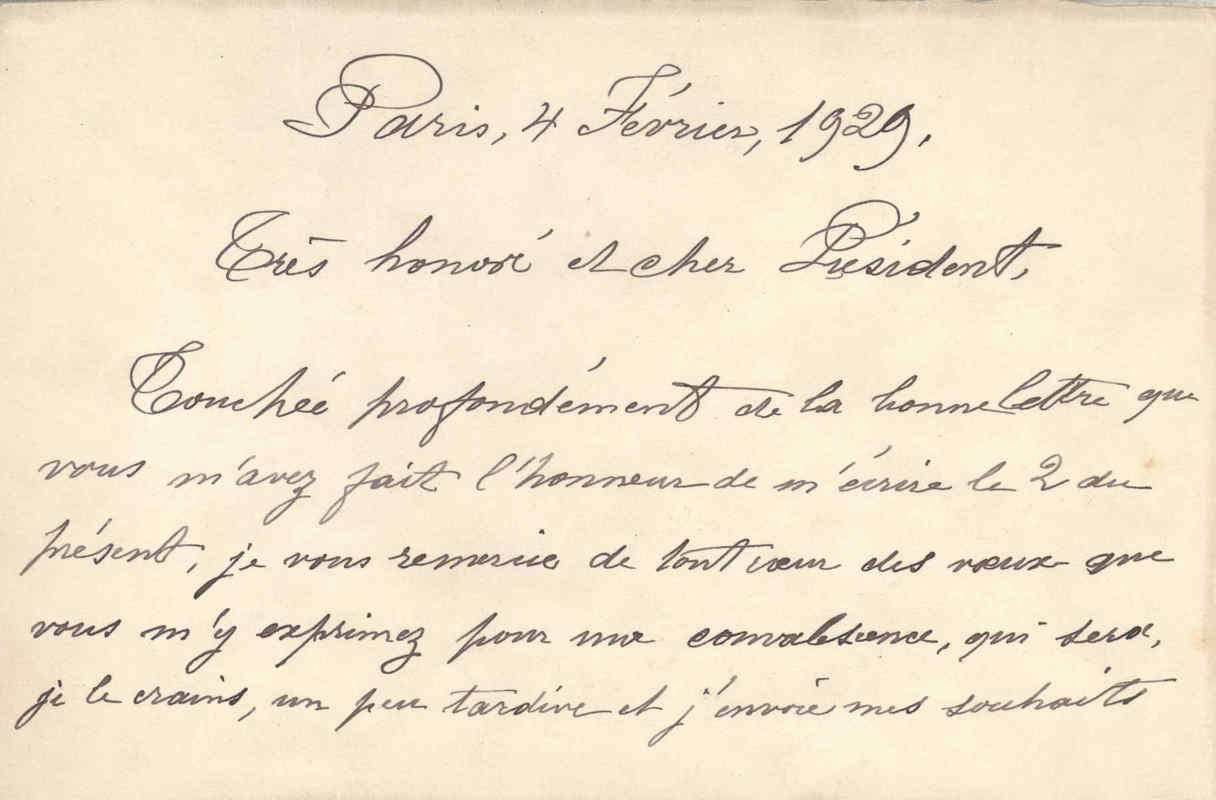 Paris, 4 Février, 1929.
Très honoré et cher Président,
Touchée profondément de la bonne lettre que
vous m'avez fait l'honneur de m'écrire le 2 du
présent, je vous remercie de tout cœur des vœux que
vous m'y exprimez pour ma convalescence, qui sera,
je le crains, un peu tardive et j'envoie mes souhaits